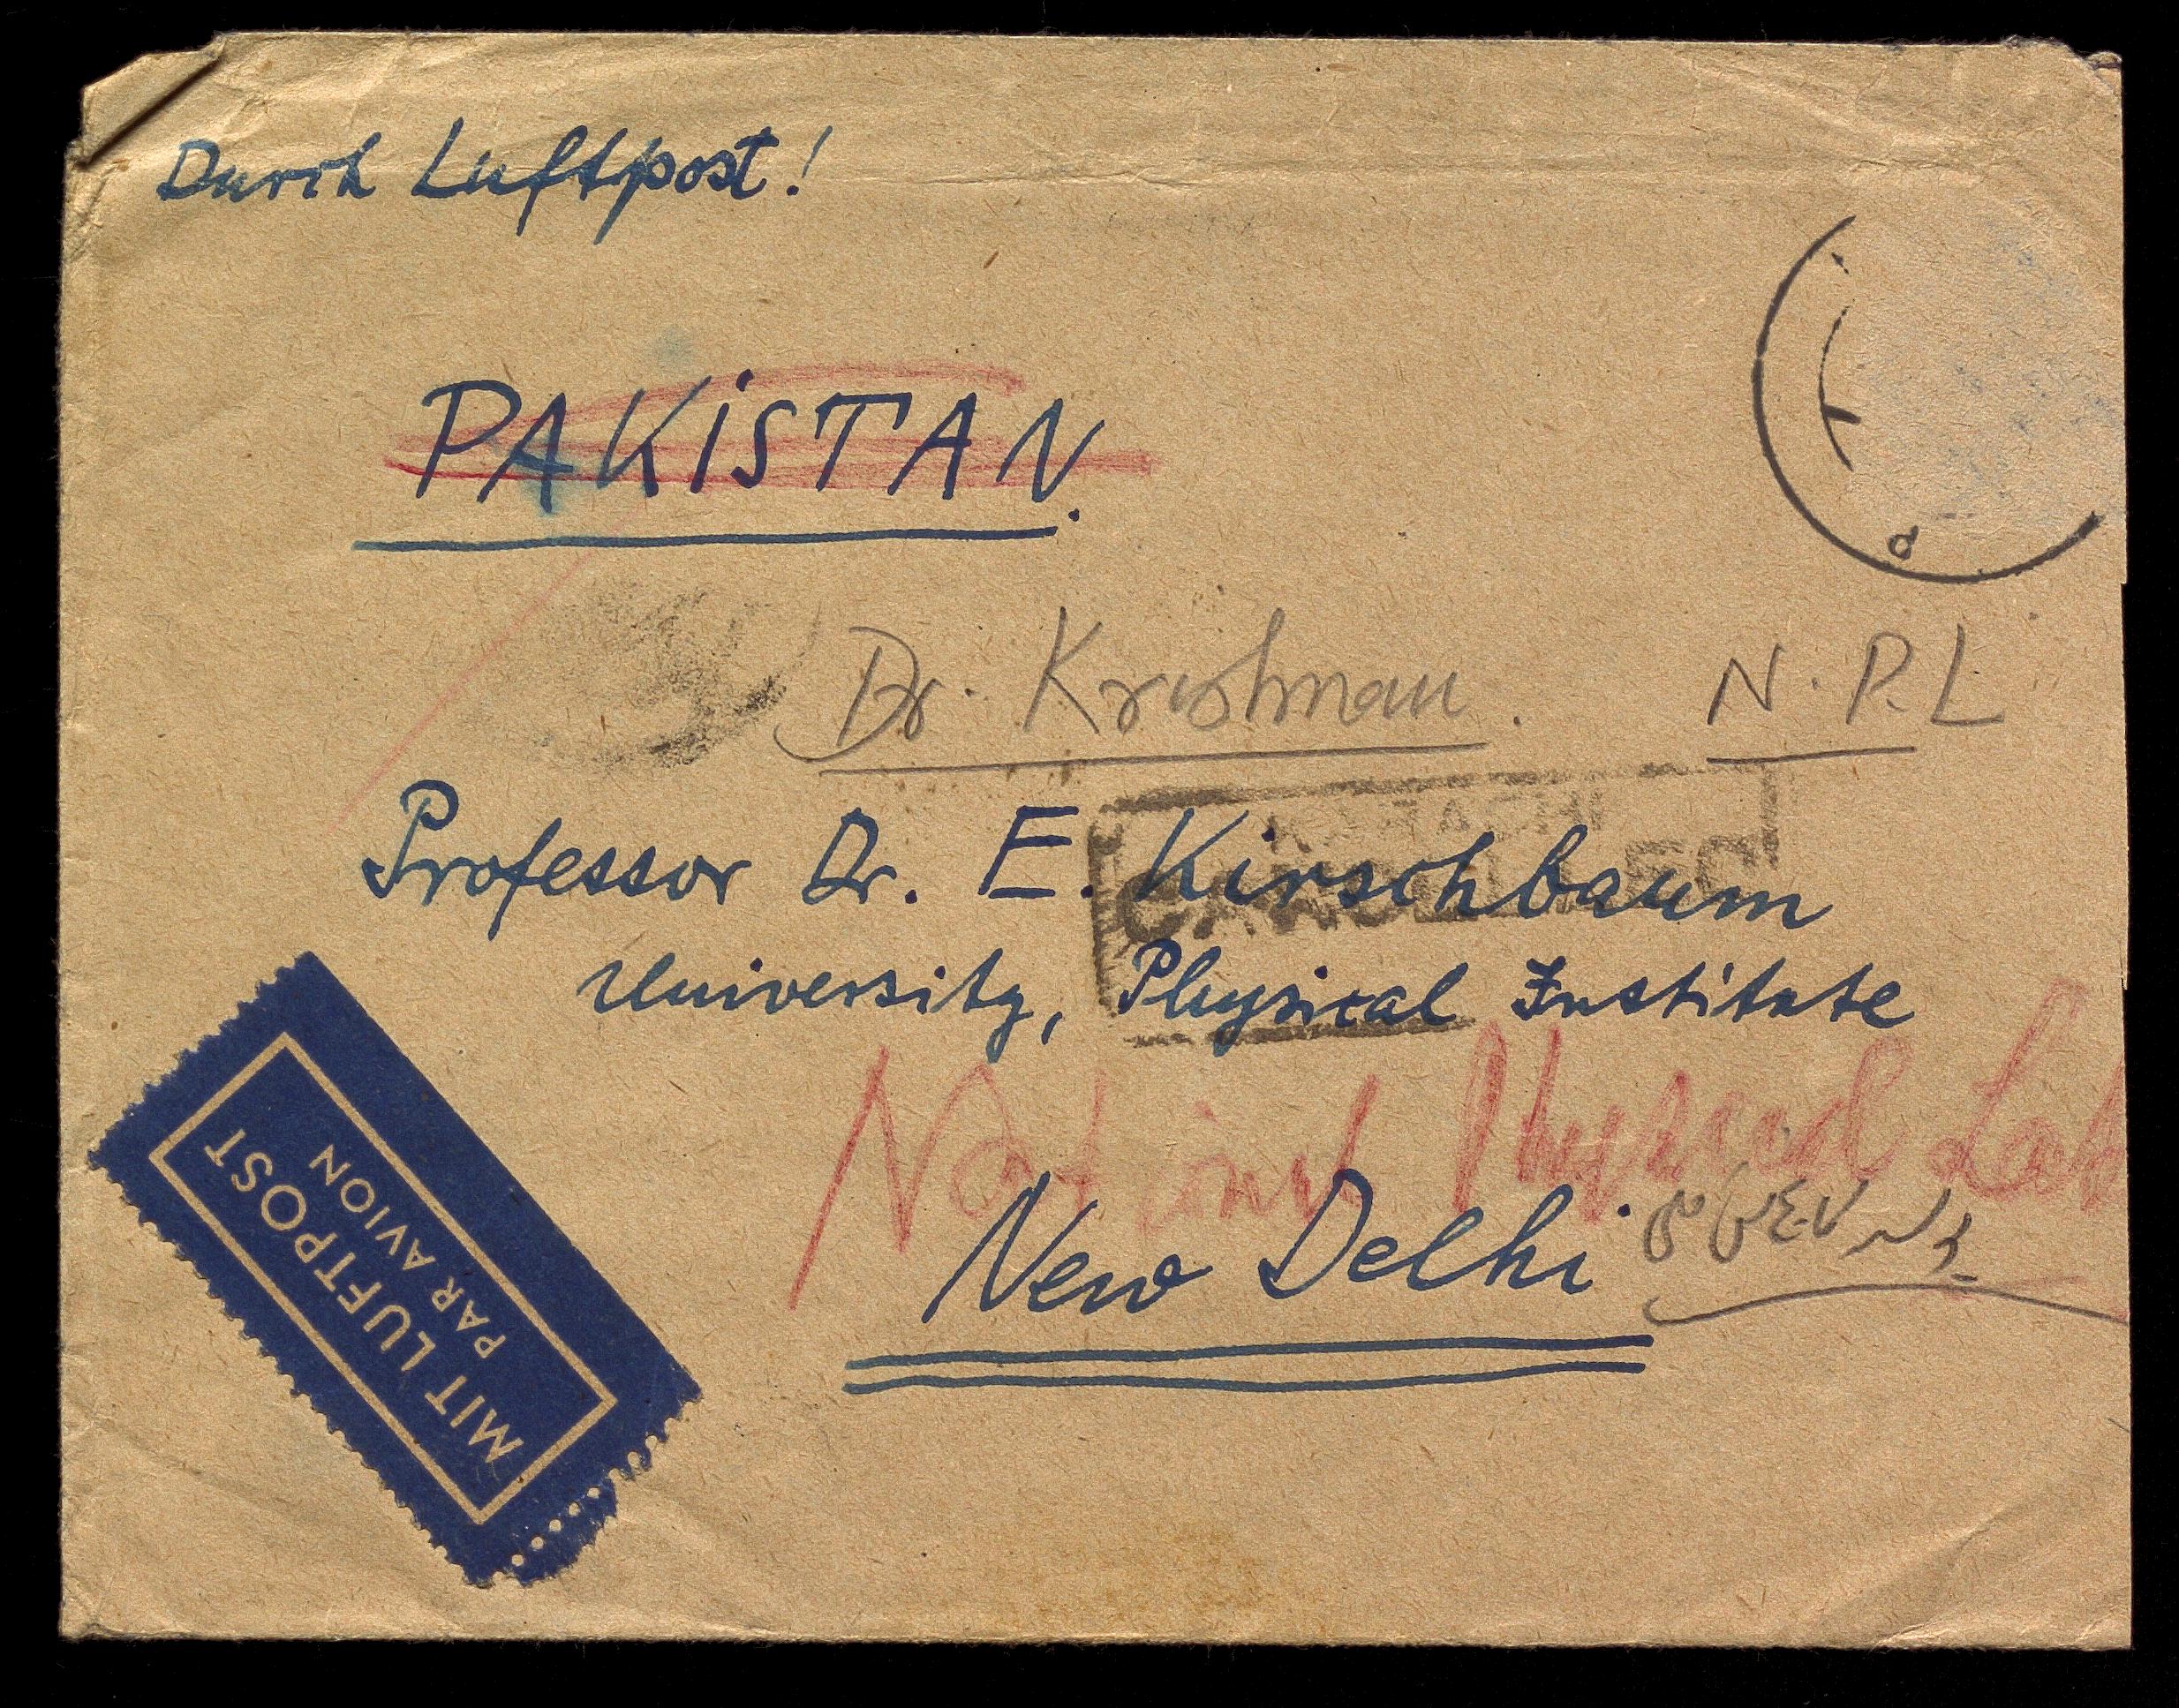 Durch Luftpost!
PAKiSTAN.
Dr. Krishnan. N.P.L
KARACHI
Professor Dr. E. Kirschbaum
University, Physical Institute
National Physical Lab
New Delhi
MIT LUFTPOST
PAR AVION
d